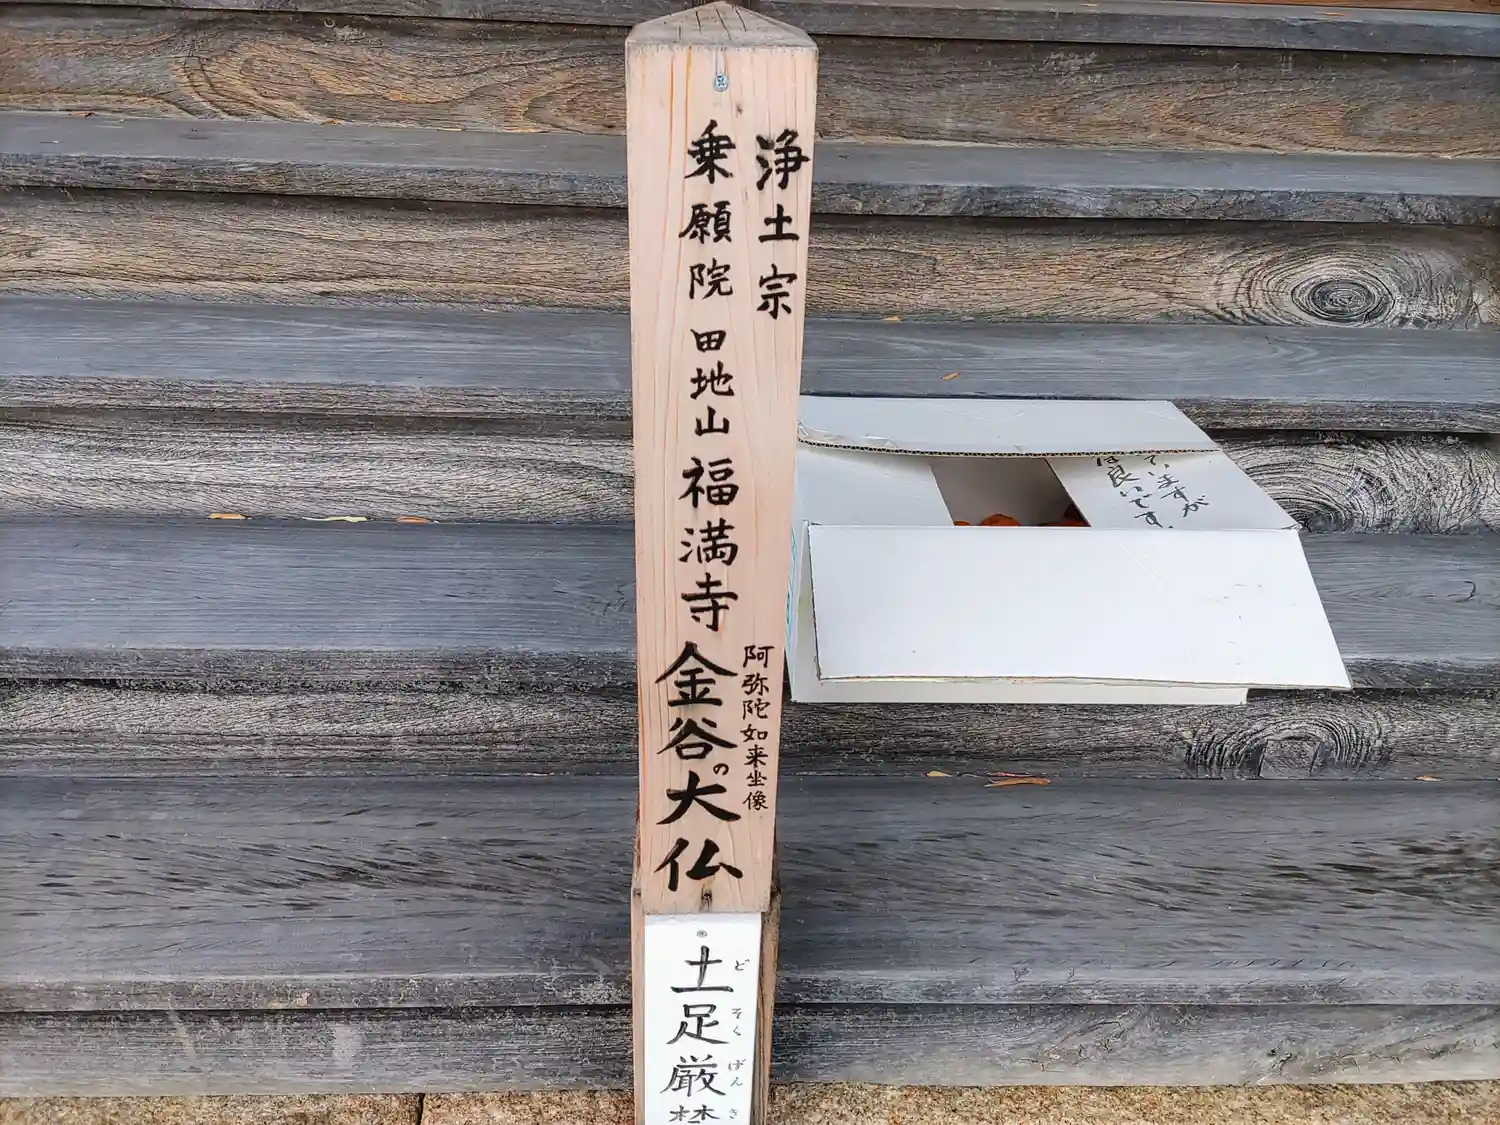 浄土宗
乗願院田地山福満寺金谷の大仏
阿弥陀如来坐像
土足厳禁
どそくげんき
ていますが
は良いです。